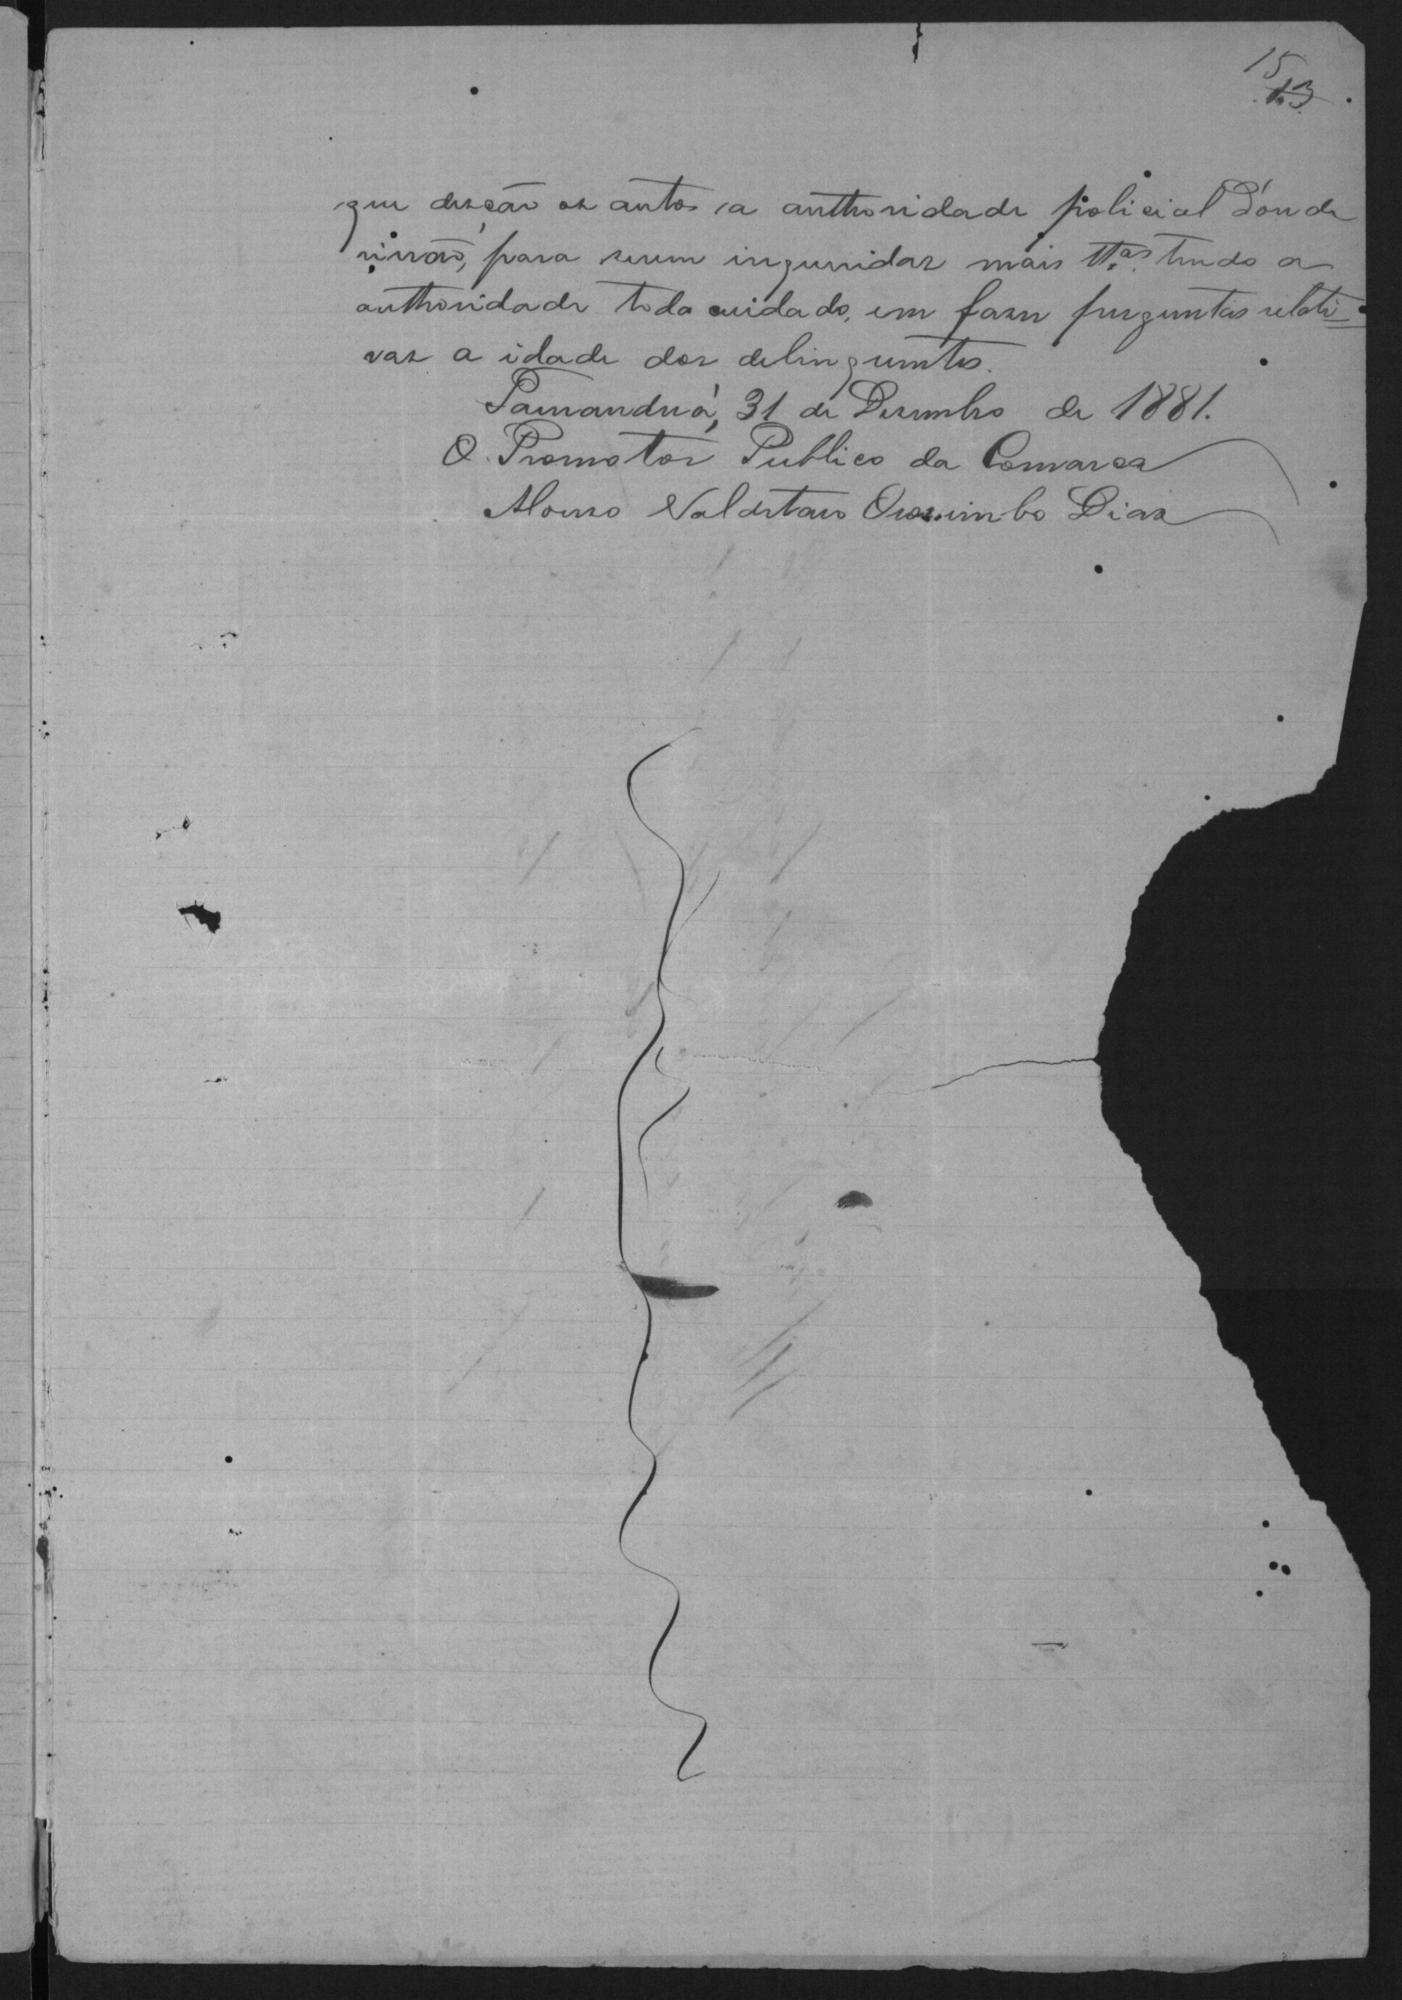 15
13
que desção os autos a authoridade policial d'onde
virão, para serem inqueridas mais ttas tendo a
authoridade todo cuidado, em fazer perguntas relati-
vas a idade dos delinquentes.
Tamanduá, 31 de Dezembro de 1881.
O Promotor Publico da Comarca
Dias